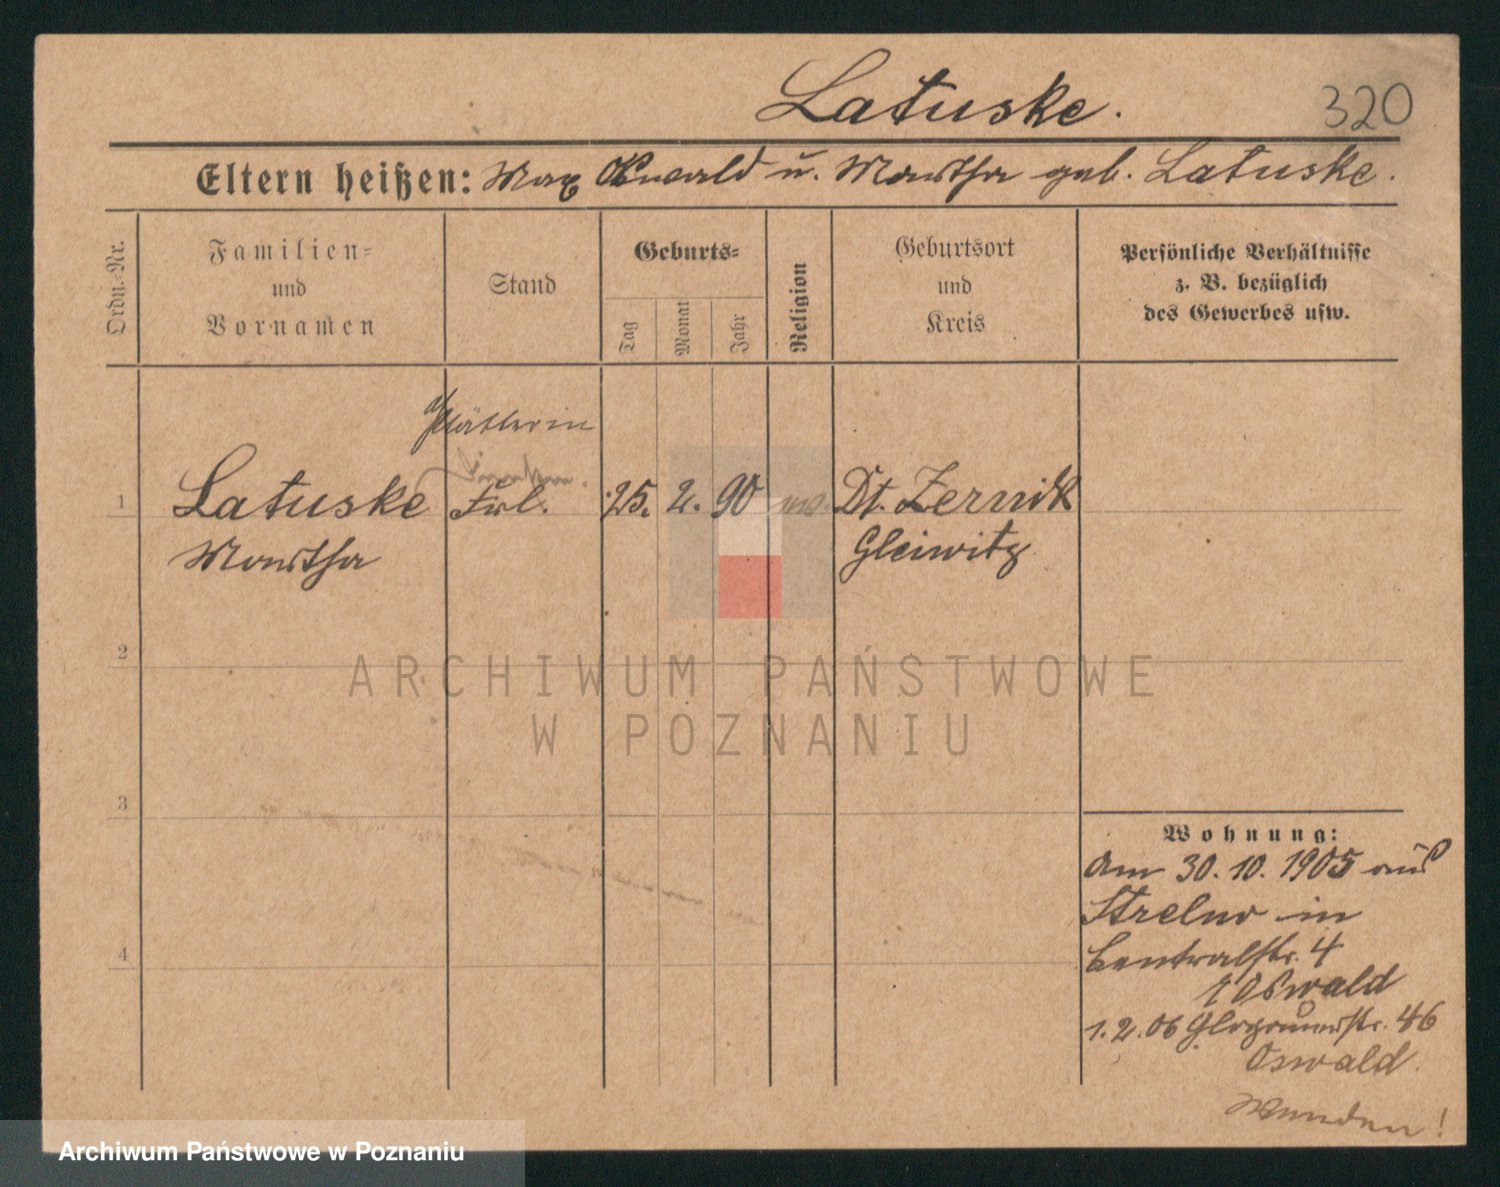 Latuske. 320
Eltern heißen: Max Oswald u. Martha geb. Latuske.
Ordn.-Nr.
Familien-
und
Vornamen
Stand
Geburts-
Tag
Monat
Jahr
Religion
Geburtsort
und
Kreis
Persönliche Verhältnisse
z. B. bezüglich
des Gewerbes usw.
Plätterin
1 Latuske Frl. 25. 2. 90 Dt. Zernitz
Martha Gleiwitz
2
ARCHIWUM PAŃSTWOWE
W POZNANIU
3
Wohnung:
Am 30. 10. 1905 aus
Strelno in
4
Centralstr. 4
Oswald
1. 2. 06 Glogauerstr. 46
Oswald.
Wenden!
Archiwum Państwowe w Poznaniu